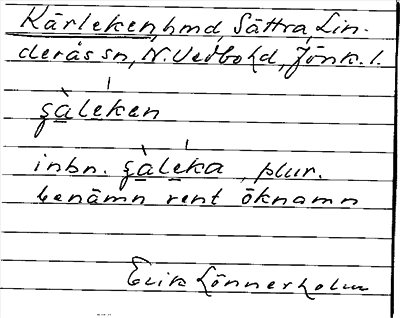 Kärleken, hmd, Sättra, Lin-
deråssn, N. Vedbo hd, Jönk. l.
şàleken
inbn. şàleka, plur.
benämn rent öknamn
Erik Lönnerholm